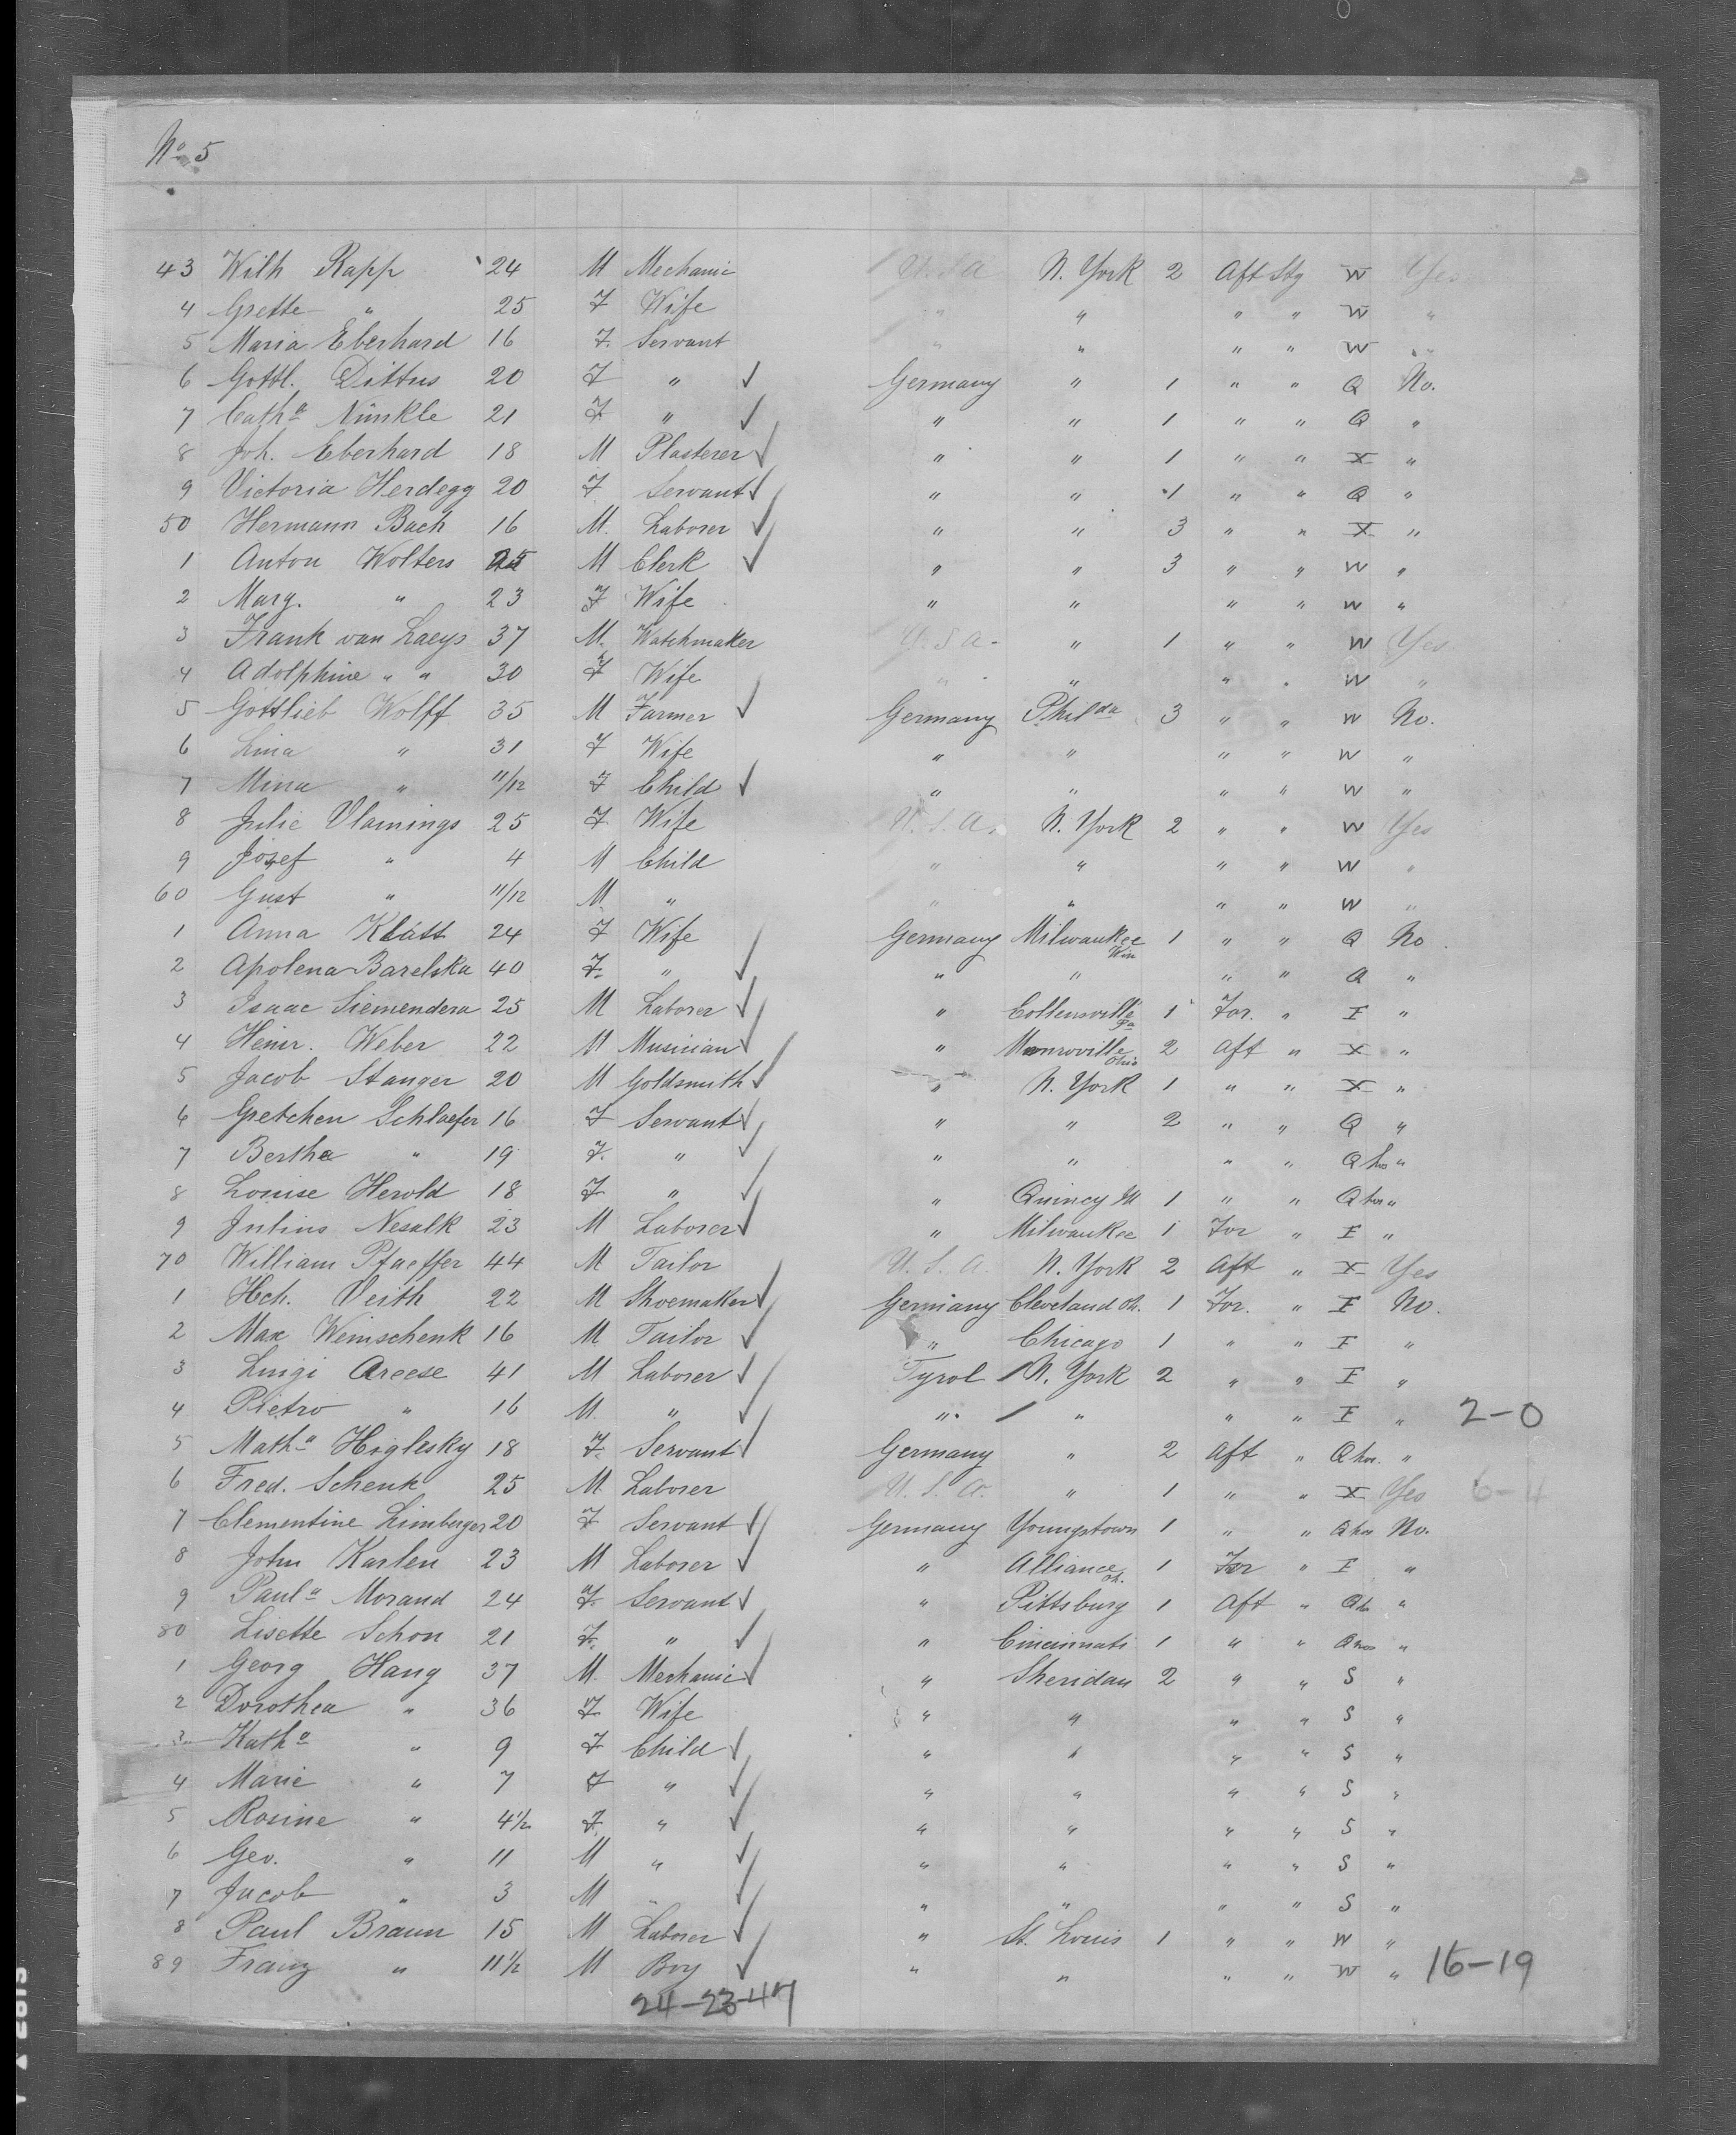 No 5
43 Wilh Rapp 24 M Mechanic U.S.A N. York 2 Aft Stg W Yes
4 Grette " 25 F Wife " " " " W "
5 Maria Eberhard 16 F. Servant " " " " W "
6 Gottl. Dittus 20 F " ✓ Germany " 1 " " Q No.
7 Catha Nünkle 21 F " ✓ " " 1 " " Q "
8 Joh. Eberhard 18 M Plasterer ✓ " " 1 " " X "
9 Victoria Herdegg 20 F Servant ✓ " " 1 " " Q "
50 Hermann Bach 16 M. Laborer ✓ " " 3 " " X "
1 Anton Wolters 25 M Clerk ✓ " " 3 " " W "
2 Marg. " 23 F Wife " " " " W "
3 Frank van Laeys 37 M. Watchmaker U.S.A- " 1 " " W Yes
4 Adolphine " " 30 F Wife " " " " W "
5 Gottlieb Wolff 35 M Farmer ✓ Germany Philda 3 " " W No.
6 Lina " 31 F Wife " " " " W "
7 Mina " 11/12 F Child ✓ " " " " W "
8 Julie Vlamings 25 F Wife U.S.A. N. York 2 " " W Yes
9 Jozef " 4 M Child " " " " W "
60 Gust " 11/12 M " " " " " W "
1 Anna Klatt 24 F Wife Germany Milwaukee Win 1 " " Q No
2 Apolena Barelska 40 F. " ✓ " " " " Q "
3 Isaac Siemendera 25 M Laborer ✓ " Collensville Pa 1 For. " I "
4 Heinr. Weber 22 M Musician ✓ " Monroville Ohio 2 Aft " X "
5 Jacob Stanger 20 M Goldsmith ✓ " N. York 1 " " X "
6 Gretchen Schlaefer 16 F Servant ✓ " " 2 " " Q "
7 Bertha " 19 F. " ✓ " " " " Q "
8 Louise Herold 18 F " ✓ " Quincy Ill 1 " " Q "
9 Julius Nesalk 23 M Laborer ✓ " Milwaukee 1 For " I "
70 William Pfaeffer 44 M Tailor U.S.A. N. York 2 Aft " X Yes
1 Hch. Veith 22 M Shoemaker ✓ Germany Cleveland Oh. 1 For. " I No.
2 Max Weinschenk 16 M. Tailor ✓ " Chicago 1 " " I "
3 Luigi Areese 41 M Laborer ✓ Tyrol N. York 2 " " I "
4 Pietro " 16 M. " ✓ " " " " I " 2-0
5 Matha Higlesky 18 F. Servant ✓ Germany " 2 Aft " Q "
6 Fred. Schenk 25 M. Laborer U.S.A. " 1 " " X Yes 6-4
7 Clementine Limberger 20 F Servant ✓ Germany Youngstown 1 " " Q No.
8 John Karlen 23 M Laborer ✓ " Alliance Oh. 1 For " I "
9 Paula Morand 24 F. Servant ✓ " Pittsburg 1 Aft " Q "
80 Lisette Schon 21 F. " ✓ " Cincinnati 1 " " Q "
1 Georg Hang 37 M. Mechanic ✓ " Sheridan 2 " " S "
2 Dorothea " 36 F Wife " " " " S "
3 Katha " 9 F Child ✓ " " " " S "
4 Marie " 7 F " ✓ " " " " S "
5 Rosine " 4½ F. " ✓ " " " " S "
6 Geo. " 11 M " ✓ " " " " S "
7 Jacob " 3 M " ✓ " " " " S "
8 Paul Braun 15 M Laborer ✓ " St. Louis 1 " " W "
89 Franz " 11½ M Boy ✓ " " " " W " 16-19
24-23-47